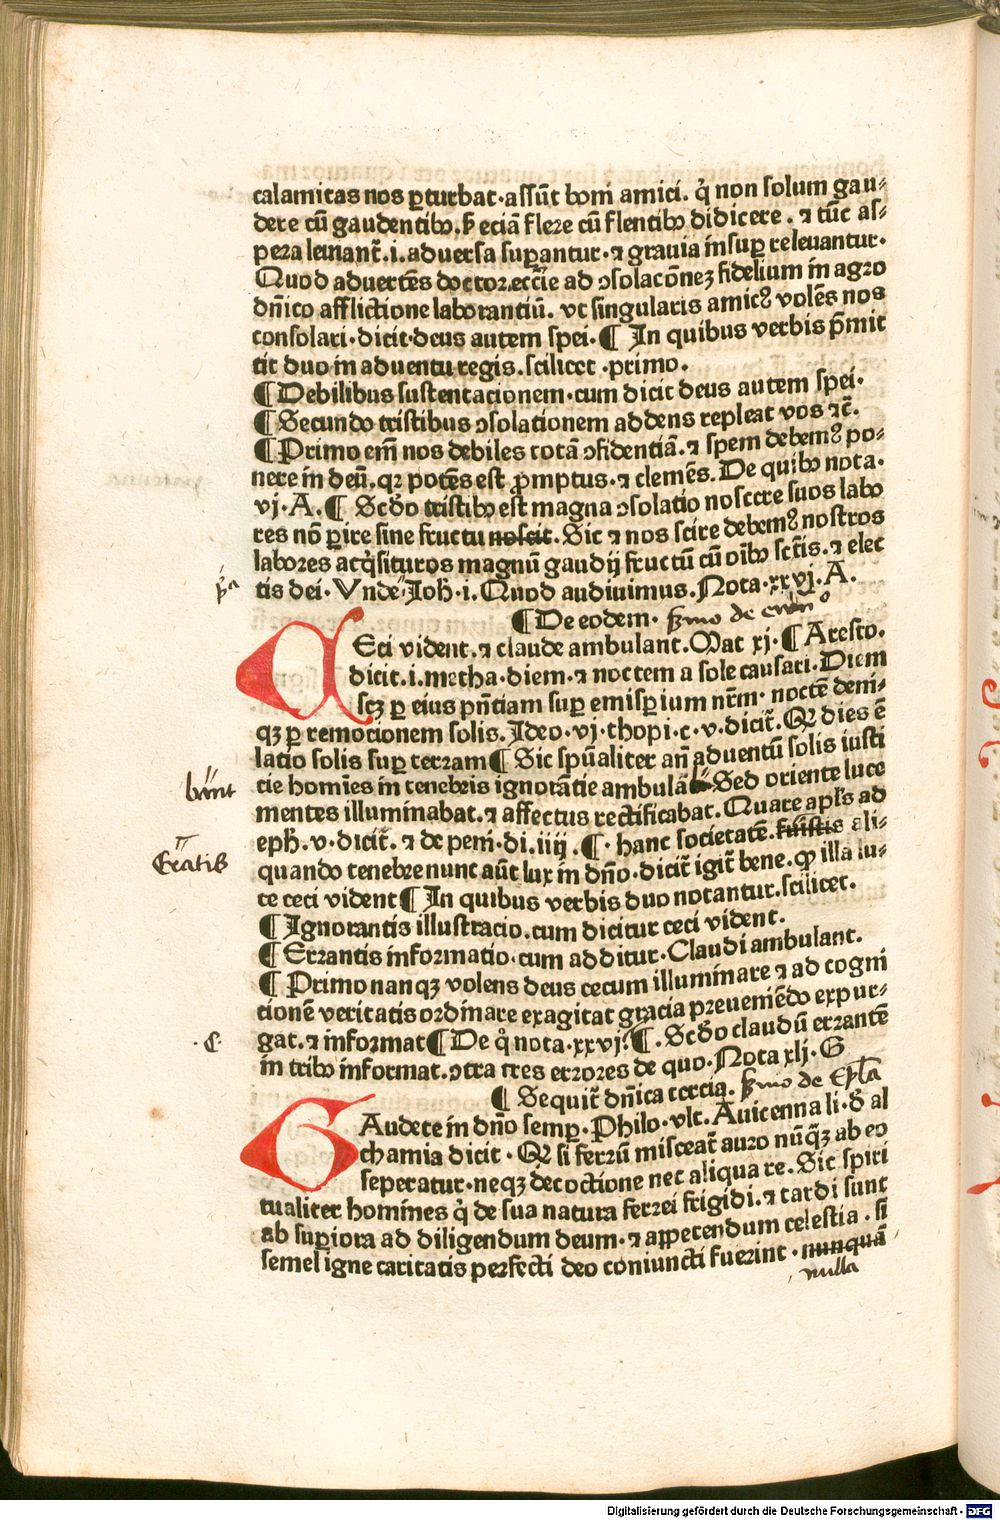 calamitas nos ꝑturbat·assūt boni amici. q̇ non solum gau⸗
dere cū gaudentibꝫ. ſꝫ eciā flere cū flentibꝫ didicere. ⁊ tūc as⸗
pera leuiant̄. i. aduersa suꝑantur· ⁊ grauia insuꝑ releuantur·
Quod aduertēs doctor eccl̄ie ad ꝯsolacōneꝫ fidelium in agro
dn̄ico afflictione laborantiū. vt singularis amicꝰ volēs nos
consolari·dicit·deus autem spei·¶ In quibus verbis p̄mit
tit duo in aduentu regis. scilicet ·primo.
¶ Debilibus sustentacionem·cum dicit deus autem spei·
¶ Secundo tristibus ꝯsolationem addens repleat vos ⁊c̄.
¶ Primo em̄ nos debiles totā ꝯfidentiā. ⁊ spem debemꝰ po⸗
nere in deū. qꝛ potēs est ꝓmptus· ⁊ clemēs. De quibꝫ nota·
vj·A.¶ Scd̄o tristibꝫ est magna ꝯsolatio noscere suos labo
res nō ꝑire sine fructu noscit. Sic ⁊ nos scire debemꝰ nostros
labores acq̇situros magnū gaudij fructū cū oībꝫ sc̄tis. ⁊ elec
p̄ª
tis dei· Vnde Joh̄·i. Quod audiuimus. Nota·xxvj·A.
¶ De eodem· sermo de euanº
CEci vident. ⁊ claude ambulant. Mat xj·¶ Aresto.
dicit. i. metha·diem· ⁊ noctem a sole causari. Diem
scꝫ ꝑ eius pn̄tiam suꝑ emisꝑium nr̄m· noctē deni⸗
qꝫ ꝑ remotionem solis. Ideo·vj·thopi·c·v·dicit̄. Qꝛ dies ē
latio solis suꝑ terram¶ Sic spūaliter an̄ aduentū solis iusti
būnt
cie homīes in tenebris ignorātie ambulā Sed oriente luce
mentes illuminabat. ⁊ affectus rectificabat. Quare apl̄s ad
eph̄·v·dicit̄. ⁊ de peni·di·iiij·¶· hanc societatē. fuistis ali⸗
Eratis
quando tenebre nunc aūt lux in dn̄o·dicit̄ igit̄ bene. ꝙ illa lu⸗
ce ceci vident¶ In quibus verbis duo notantur. scilicet.
¶ Ignorantis illustracio. cum dicitur ceci vident.
¶ Errantis informatio· cum additur·Claudi ambulant.
¶ Primo nanqꝫ volens deus cecum illuminare ⁊ ad cogni
tionē veritatis ordinare exagitat gracia preueniēdo expur⸗
·C·
gat. ⁊ informat¶ De q̇ nota·xxvj·¶. Scd̄o claudū errantē
in tribꝫ informat. ꝯtra tres errores de quo·Nota xlj·G
¶ Sequit̄ dn̄ica tercia. sermo de Epl̄a
GAudete in dn̄o semꝑ·Philo·vlt·Auicenna li·d̄ al
chamia dicit· Qꝛ si ferrū misceat̄ auro nūq̄ꝫ ab eo
seperatur·neqꝫ decoctione nec aliqua re·Sic spiri
tualiter homines q̇ de sua natura ferrei frigidi. ⁊ tardi sunt
ab suꝑiora ad diligendum deum· ⁊ appetendum celestia · si
semel igne caritatis perfecti deo coniuncti fuerint · nunquā
nulla
Digitalisierung gefördert durch die Deutsche Forschungsgemeinschaft - DFG